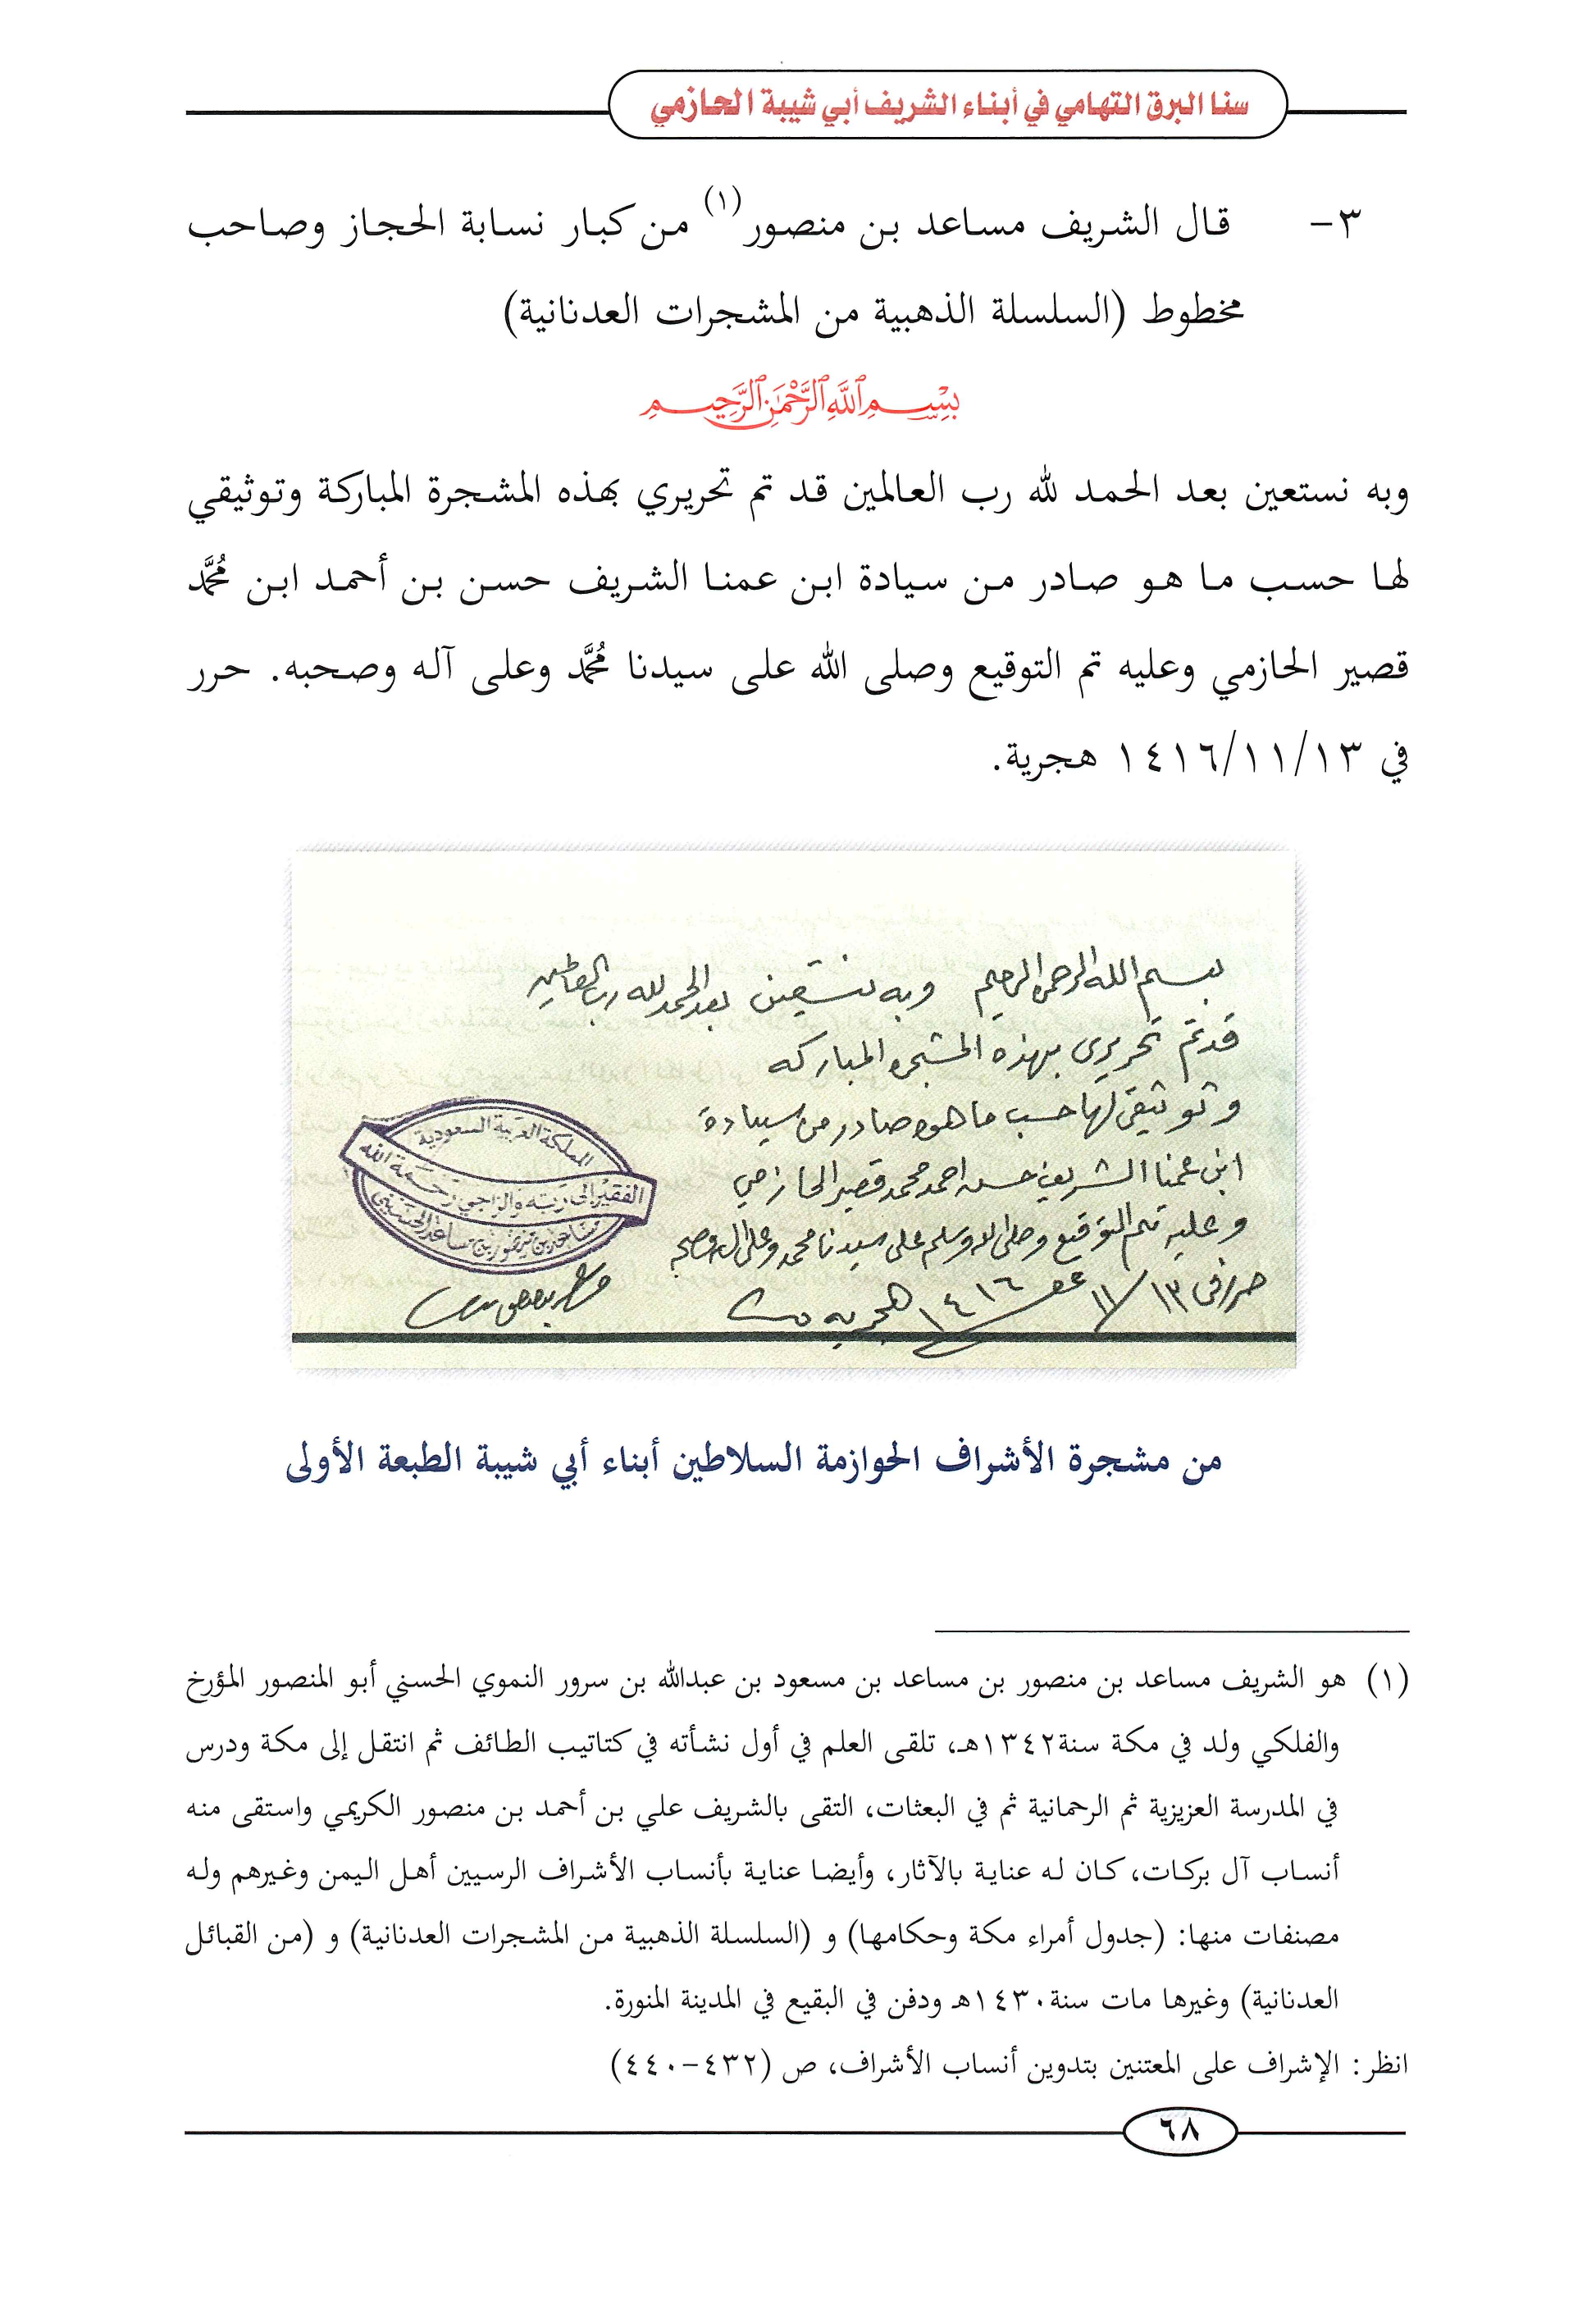 سنا البرق التهامي في أبناء الشريف أبي شيبة الحازمي
٣- قال الشريف مساعد بن منصور(١) من كبار نسابة الحجاز وصاحب
مخطوط (السلسلة الذهبية من المشجرات العدنانية)
بِسْمِ ٱللَّهِ ٱلرَّحْمَٰنِ ٱلرَّحِيمِ
وبه نستعين بعد الحمد لله رب العالمين قد تم تحريري بهذه المشجرة المباركة وتوثيقي
لها حسب ما هو صادر من سيادة ابن عمنا الشريف حسن بن أحمد ابن مُحَمَّد
قصير الحازمي وعليه تم التوقيع وصلى الله على سيدنا مُحَمَّد وعلى آله وصحبه. حرر
في ١٤١٦/١١/١٣ هجرية.
بسم الله الرحمن الرحيم وبه نستعين بعد الحمد لله رب العالمين
قد تم تحريري بهذه المشجره المباركه
وتوثيقي لها حسب ما هو صادر من سيادة
ابن عمنا الشريف حسن احمد محمد قصير الحازمي
وعليه تم التوقيع وصلى الله وسلم على سيدنا محمد وعلى آله وصحبه
حرر في ١٣/١١/١٤١٦ هجريه
المملكة العربية السعودية
الفقير إلى ربه والراجي رحمة الله
مساعد بن منصور بن مساعد الحسني
من مشجرة الأشراف الحوازمة السلاطين أبناء أبي شيبة الطبعة الأولى
(١) هو الشريف مساعد بن منصور بن مساعد بن مسعود بن عبدالله بن سرور النموي الحسني أبو المنصور المؤرخ
والفلكي ولد في مكة سنة١٣٤٢هـ، تلقى العلم في أول نشأته في كتاتيب الطائف ثم انتقل إلى مكة ودرس
في المدرسة العزيزية ثم الرحمانية ثم في البعثات، التقى بالشريف علي بن أحمد بن منصور الكريمي واستقى منه
أنساب آل بركات، كان له عناية بالآثار، وأيضا عناية بأنساب الأشراف الرسيين أهل اليمن وغيرهم وله
مصنفات منها: (جدول أمراء مكة وحكامها) و (السلسلة الذهبية من المشجرات العدنانية) و (من القبائل
العدنانية) وغيرها مات سنة١٤٣٠هـ ودفن في البقيع في المدينة المنورة.
انظر: الإشراف على المعتنين بتدوين أنساب الأشراف، ص (٤٣٢-٤٤٠)
٦٨